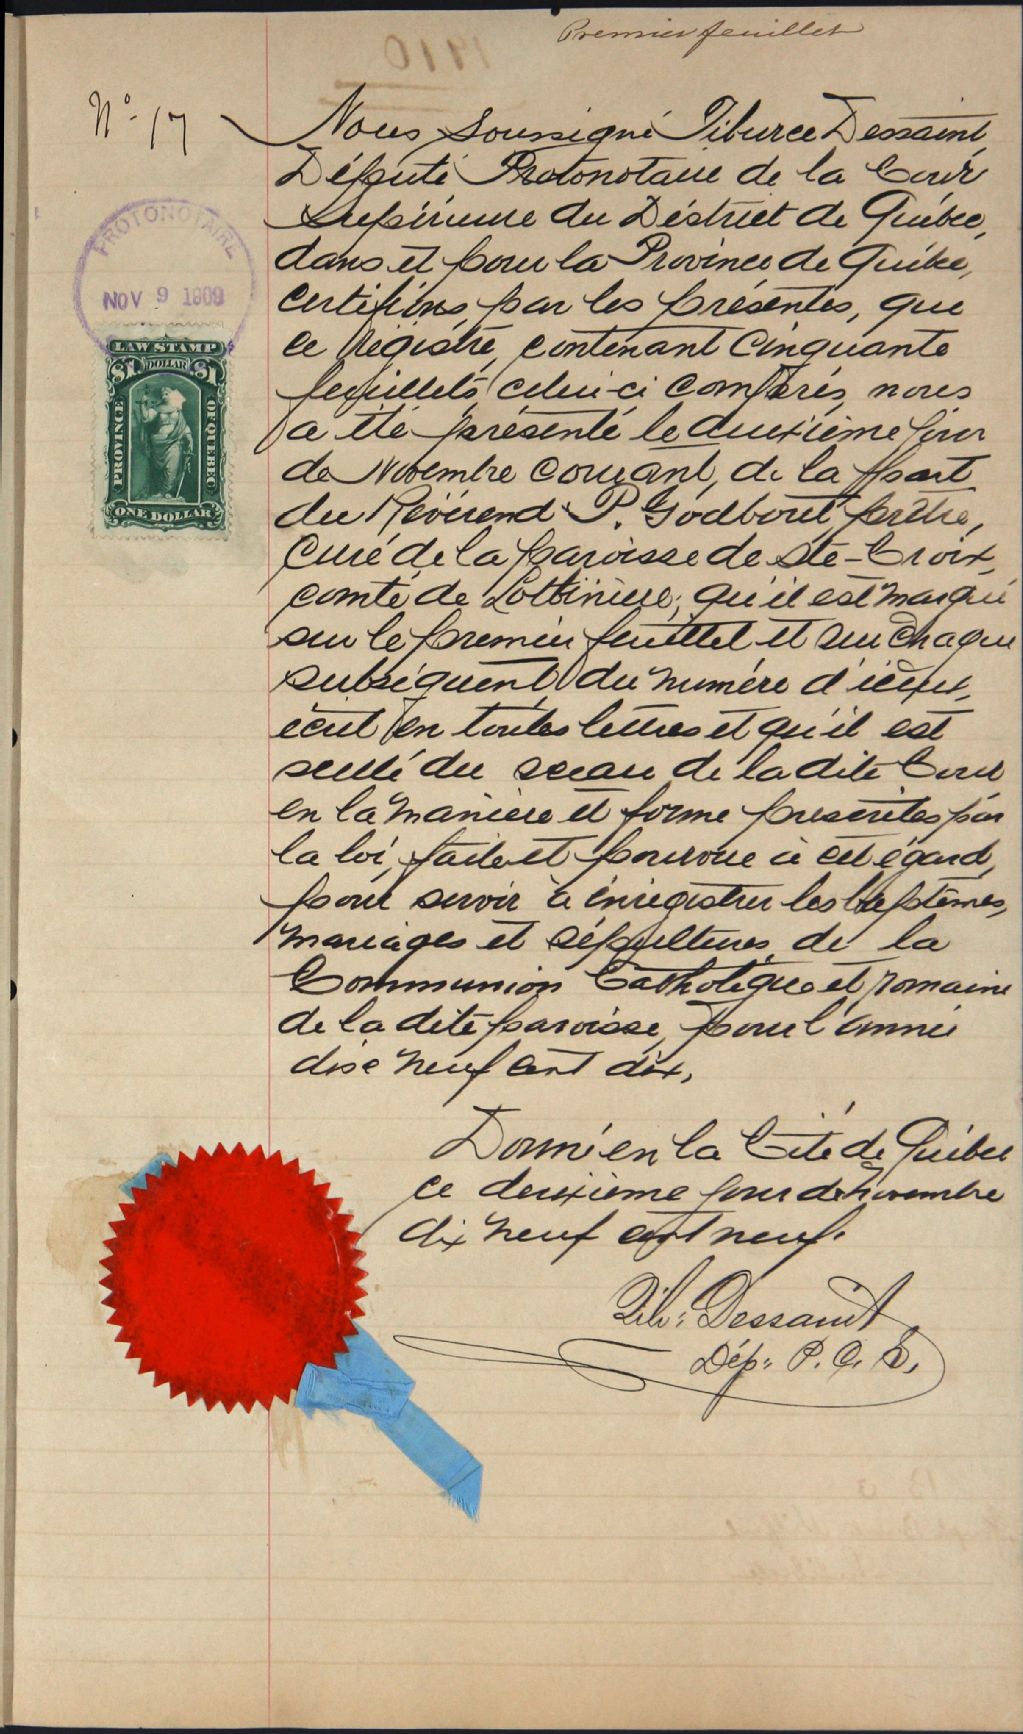 Premier feuillet
No. 17
Nous Soussigné Tiburce Dessaint,
Député Protonotaire de la Cour
Supérieure du District de Québec,
dans et pour la Province de Québec,
certifions par les présentes, que
ce Régistre, contenant Cinquante
feuillets, celui-ci compris, nous
a été présenté le deuxième jour
de Novembre courant, de la part
du Révérend P. Godbout, prêtre,
Curé de la paroisse de Ste-Croix,
comté de Lotbinière; qu'il est marqué
sur le premier feuillet et sur chaque
subséquent du numéro d'iceux,
écrit en toutes lettres et qu'il est
scellé du sceau de la dite Cour
en la manière et forme prescrites par
la loi, faite et pourvue à cet égard,
pour servir à enregistrer les baptêmes,
mariages et sépultures de la
Communion Catholique et romaine
de la dite paroisse, pour l'année
dix neuf cent dix.
Donné en la Cité de Québec
ce deuxième jour de Novembre
dix neuf cent neuf.
Tib: Dessaint
Dép: P. C. S.
PROTONOTAIRE
NOV 9 1909
LAW STAMP
$1 DOLLAR $1
PROVINCE OF QUEBEC
ONE DOLLAR